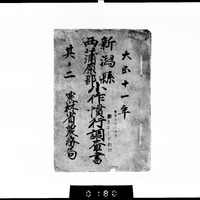 大正十一年
新潟縣
西蒲原郡小作慣行調査書
其ノ二
農林省農務局
0180